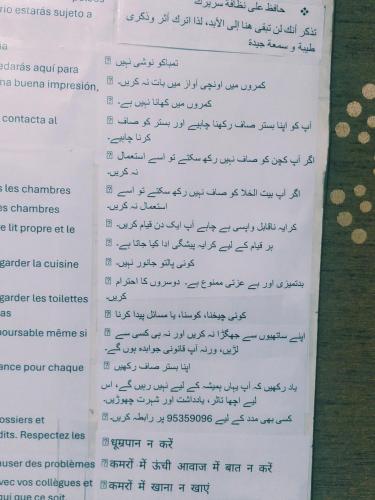 rio estarás sujeto a
edarás aquí para
na buena impresión,
contacta al
s les chambres
es chambres
e lit propre et le
garder la cuisine
garder les toilettes
as
boursable même si
ance pour chaque
ossiers et
dits. Respectez les
user des problèmes
avec vos collègues et
qui que ce soit
❖ حافظ على نظافة سريرك
تذكر أنك لن تبقى هنا إلى الأبد، لذا اترك أثر وذكرى
طيبة و سمعة جيدة
تمباکو نوشی نہیں
کمروں میں اونچی آواز میں بات نہ کریں۔
کمروں میں کھانا نہیں ہے۔
آپ کو اپنا بستر صاف رکھنا چاہیے اور بستر کو صاف
کرنا چاہیے۔
اگر آپ کچن کو صاف نہیں رکھ سکتے تو اسے استعمال
نہ کریں۔
اگر آپ بیت الخلا کو صاف نہیں رکھ سکتے تو اسے
استعمال نہ کریں۔
کرایہ ناقابل واپسی ہے چاہے آپ ایک دن قیام کریں۔
ہر قیام کے لیے کرایہ پیشگی ادا کیا جاتا ہے۔
کوئی پالتو جانور نہیں۔
بدتمیزی اور بے عزتی ممنوع ہے۔ دوسروں کا احترام
کریں۔
کوئی چیخنا، کوسنا، یا مسائل پیدا کرنا
اپنے ساتھیوں سے جھگڑا نہ کریں اور نہ ہی کسی سے
لڑیں، ورنہ آپ قانونی جوابدہ ہوں گے۔
اپنا بستر صاف رکھیں
یاد رکھیں کہ آپ یہاں ہمیشہ کے لیے نہیں رہیں گے، اس
لیے اچھا تاثر، یادداشت اور شہرت چھوڑیں۔
کسی بھی مدد کے لیے 95359096 پر رابطہ کریں۔
धूम्रपान न करें
कमरों में ऊंची आवाज में बात न करें
कमरों में खाना न खाएं